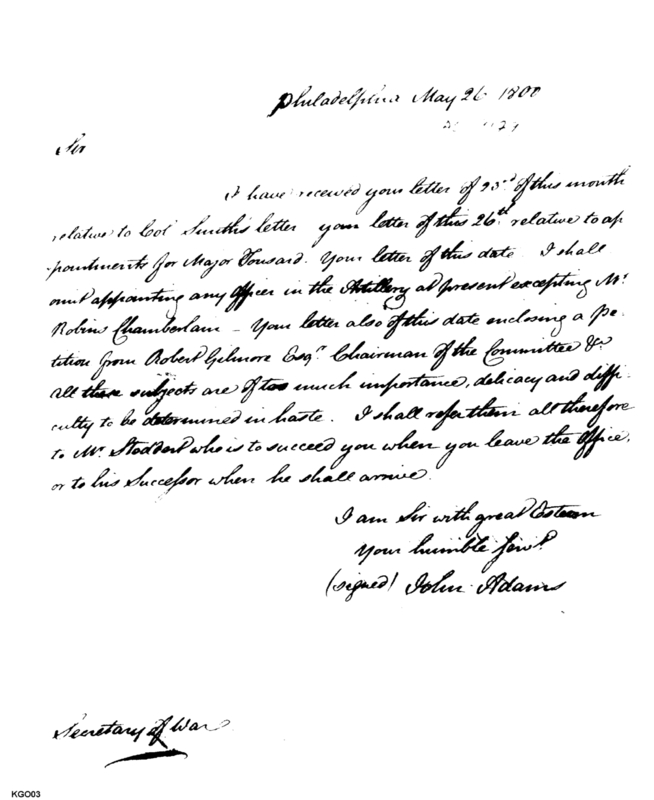 Philadelphia May 26 1800
29
Sir
I have received your letter of 23.d of this month
relative to Col Smiths letter your letter of this 26th relative to ap
pointments for Major Tousard. Your letter of this date I shall
omit appointing any Officer in the Artillery at present excepting Mr
Robin Chamberlain – Your letter also of this date enclosing a pe-
tition from Robert Gilmore Esqr Chairman of the Committee &c
All these subjects are of too much importance, delicacy and diffi-
culty to be determined in haste. I shall refer them all therefore
to Mr Stoddert who is to succeed you when you leave the Office,
or to his Successor when he shall arrive.
I am Sir with great Esteem
Your humble Servt
(signed) John Adams
Secretary of War
KGO03